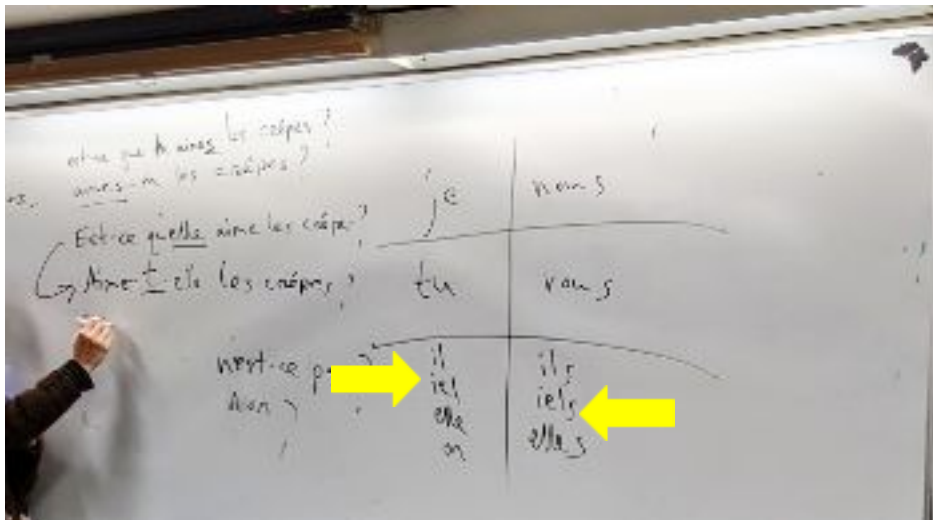 est-ce que tu aimes les crêpes ?
aimes-tu les crêpes ?
Est-ce qu'elle aime les crêpes ?
Aime-t-elle les crêpes ?
n'est-ce pas ?
non ?
je
nous
tu
vous
il
iel
elle
on
ils
iels
elles